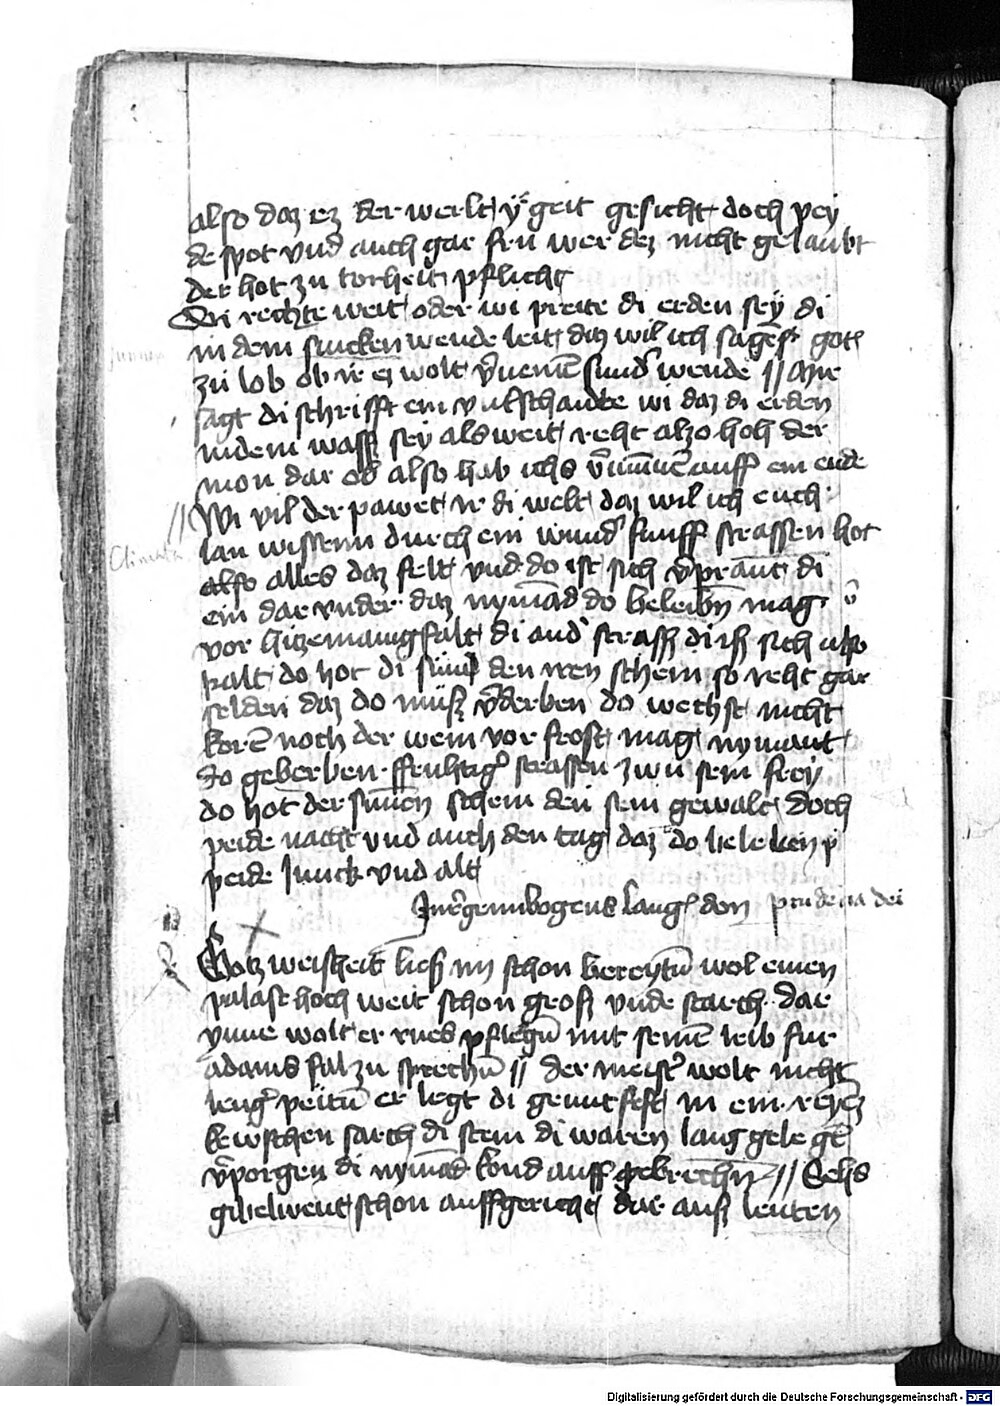 also daz ez der werlt ÿ geit gesicht doch pey
de spot vnd auch gar fru wer dez nicht gelaubt
der hot zu torheit pflicht
Di rechte weit oder wi preite di erden sey di
in dem sincken wende leit daz wil ich sagē got
zu lob ob ir ez wolt v̄nemē sund' wende // Mir
sagt di schrifft ein vnkschande wi daz di erden
in dem wasß sey als weit reht alzo hoh der
mon dar ob also hab ichs v̄numē auff ein ende
// Wi vil der pawet ir di welt daz wil ich euch
lan wissenn durch ein wund' funff strassen hot
also alles daz felt vnd do ist sich v̄prant di
ein dar vnder daz nymād do beleibn mag
vor hitze manigfalt di and' straß di iß sich also
kalt do hot di sunn den iren schein so reht gar
selden daz do müß v̄derben do wechst nicht
korē noch der wein vor frost mag nymant
do geberben ffruhtig' strassen zwu sein frey
do hot der sunnen schein den sein gewalt doch
peide nacht vnd auch den tag daz do beleiben
peide Junck vnd alt
Jm regennbogens lang don prudencia dei
Gotz weisheit ließ im schon bereytn wol einen
palast hoch weit schon groß vnde starch dar
ynne wolt er rues pflegn mit seinē leib fur
adams fal zu sprechn // der meist' wolt nicht
leng' peitn er legt di gruntfest in ein reyches
kewschen sarch di stein di waren lang gelegē
v̄porgen di nymād kond auff gebrechn // Sehs
gibelwent schon auffgericht dar auß leuten
Digitalisierung gefördert durch die Deutsche Forschungsgemeinschaft - DFG